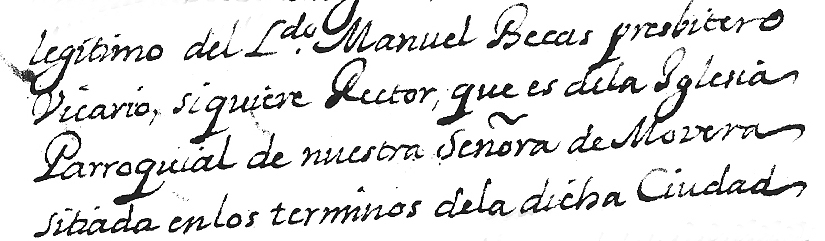 legitimo del L.do Manuel Becas presbitero
Vicario, siquiere Rector, que es dela Iglesia
Parroquial de nuestra Señora de Movera
sitiada enlos terminos dela dicha Ciudad